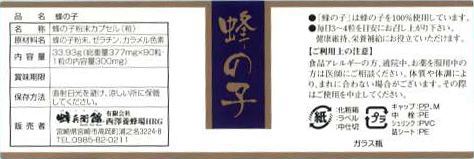 品名 蜂の子
名称 蜂の子粉末カプセル(粒)
原材料名 蜂の子粉末、ゼラチン、カラメル色素
内容量 33.93g(総重量377mg×90粒・
1粒の内容量300mg)
賞味期限
保存方法 直射日光を避け、涼しい所に保管
してください。
販売者 有限会社
西澤養蜂場HRG
宮崎県宮崎市高岡町浦之名3224-8
TEL.0985-82-0211
蜂の子
●「蜂の子」は蜂の子を100%使用しています。
●毎日3~4粒を目安にお召し上がり下さい。
健康維持、栄養補給にお役立て下さい。
【ご利用上の注意】
食品アレルギーの方、通院中、お薬を服用中の
方は医師にご相談ください。体質や体調によ
り、まれに合わない場合がございます。その際
はご使用を中止してください。
紙
化粧箱
ラベル
中仕切
プラ
キャップ:PP、M
中栓:PE
シュリンク:PVC
詰シート:PE
ガラス瓶